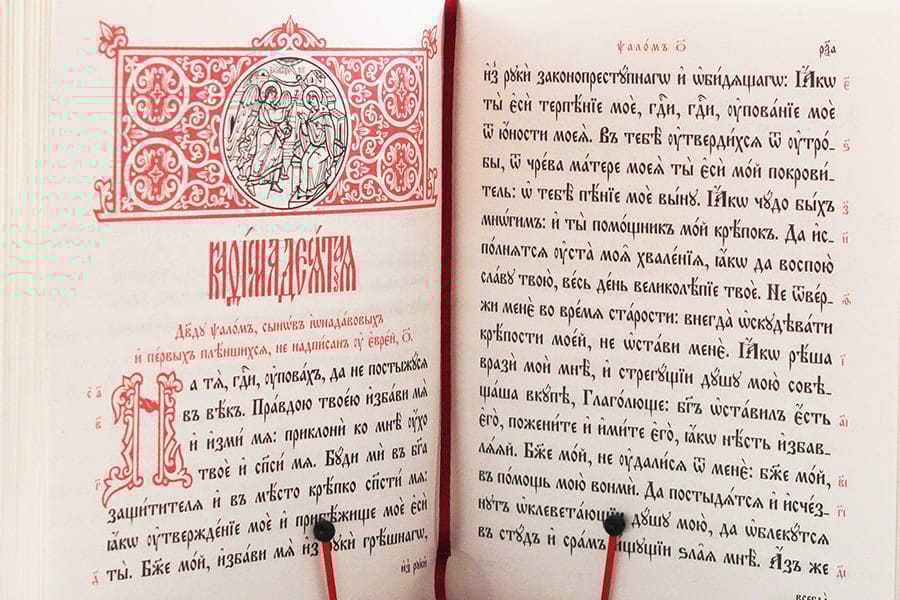 Каѳі́сма десѧ́таѧ
Дв҃дꙋ ѱало́мъ, сынѡ́въ і҆ѡнада́вовыхъ
и҆ пе́рвыхъ плѣ́ншихсѧ, не надпи́санъ ᲂу҆ є҆врє́й, ѻ҃.
На тѧ̀, гдⷭ҇и, ᲂу҆пова́хъ, да не постыжꙋ́сѧ
въ вѣ́къ. Пра́вдою твое́ю и҆зба́ви мѧ̀
и҆ и҆зми́ мѧ: приклонѝ ко мнѣ̀ ᲂу҆́хо
твоѐ и҆ сп҃си́ мѧ. Бꙋ́ди мѝ въ бг҃а
защи́тителѧ и҆ въ мѣ́сто крѣ́пко сп҃сти́ мѧ:
ꙗ҆́кѡ ᲂу҆твержде́нїе моѐ и҆ прибѣ́жище моѐ є҆сѝ
ты̀. Бж҃е мо́й, и҆зба́ви мѧ̀ и҆з̾ рꙋкѝ грѣ́шнагѡ,
и҆з̾ рꙋкѝ
с҃ а҃
в҃
г҃
д҃
ѱало́мъ ѻ҃
рд҃а
и҆з̾ рꙋкѝ законопрестꙋ́пнагѡ и҆ ѡ҆би́дѧщагѡ: Ꙗ҆́кѡ є҃
ты̀ є҆сѝ терпѣ́нїе моѐ, гдⷭ҇и, гдⷭ҇и, ᲂу҆пова́нїе моѐ
ѿ ю҆́ности моеѧ̀. Въ тебѣ̀ ᲂу҆тверди́хсѧ ѿ ᲂу҆тро́- ѕ҃
бы, ѿ чре́ва ма́тере моеѧ̀ ты̀ є҆сѝ мо́й покрови́-
тель: ѡ҆ тебѣ̀ пѣ́нїе моѐ вы́нꙋ. Ꙗ҆́кѡ чꙋ́до бы́хъ з҃
мнѡ́гимъ: и҆ ты̀ помо́щникъ мо́й крѣ́покъ. Да и҆с- и҃
по́лнѧтсѧ ᲂу҆ста̀ моѧ̑ хвале́нїѧ, ꙗ҆́кѡ да воспою̀
сла́вꙋ твою̀, ве́сь де́нь великолѣ́пїе твоѐ. Не ѿве́р- ѳ҃
жи менѐ во вре́мѧ ста́рости: внегда̀ ѡ҆скꙋдѣва́ти
крѣ́пости мое́й, не ѡ҆ста́ви менє̀. Ꙗ҆́кѡ рѣ́ша і҃
вразѝ мои̑ мнѣ̀, и҆ стрегꙋ́щїи дꙋ́шꙋ мою̀ совѣ-
ща́ша вкꙋ́пѣ, Глаго́люще: бг҃ъ ѡ҆ста́вилъ є҆́сть а҃і
є҆го̀, пожени́те и҆ и҆ми́те є҆го̀, ꙗ҆́кѡ нѣ́сть и҆збав-
лѧ́ѧй. Бж҃е мо́й, не ᲂу҆дали́сѧ ѿ менє̀: бж҃е мо́й, в҃і
въ по́мощь мою̀ вонмѝ. Да постыдѧ́тсѧ и҆ и҆сче́з- г҃і
нꙋтъ ѡ҆клевета́ющїи дꙋ́шꙋ мою̀, да ѡ҆блекꙋ́тсѧ
въ стꙋ́дъ и҆ сра́мъ и҆́щꙋщїи ѕла̑ѧ мнѣ̀. А҆́зъ же д҃і